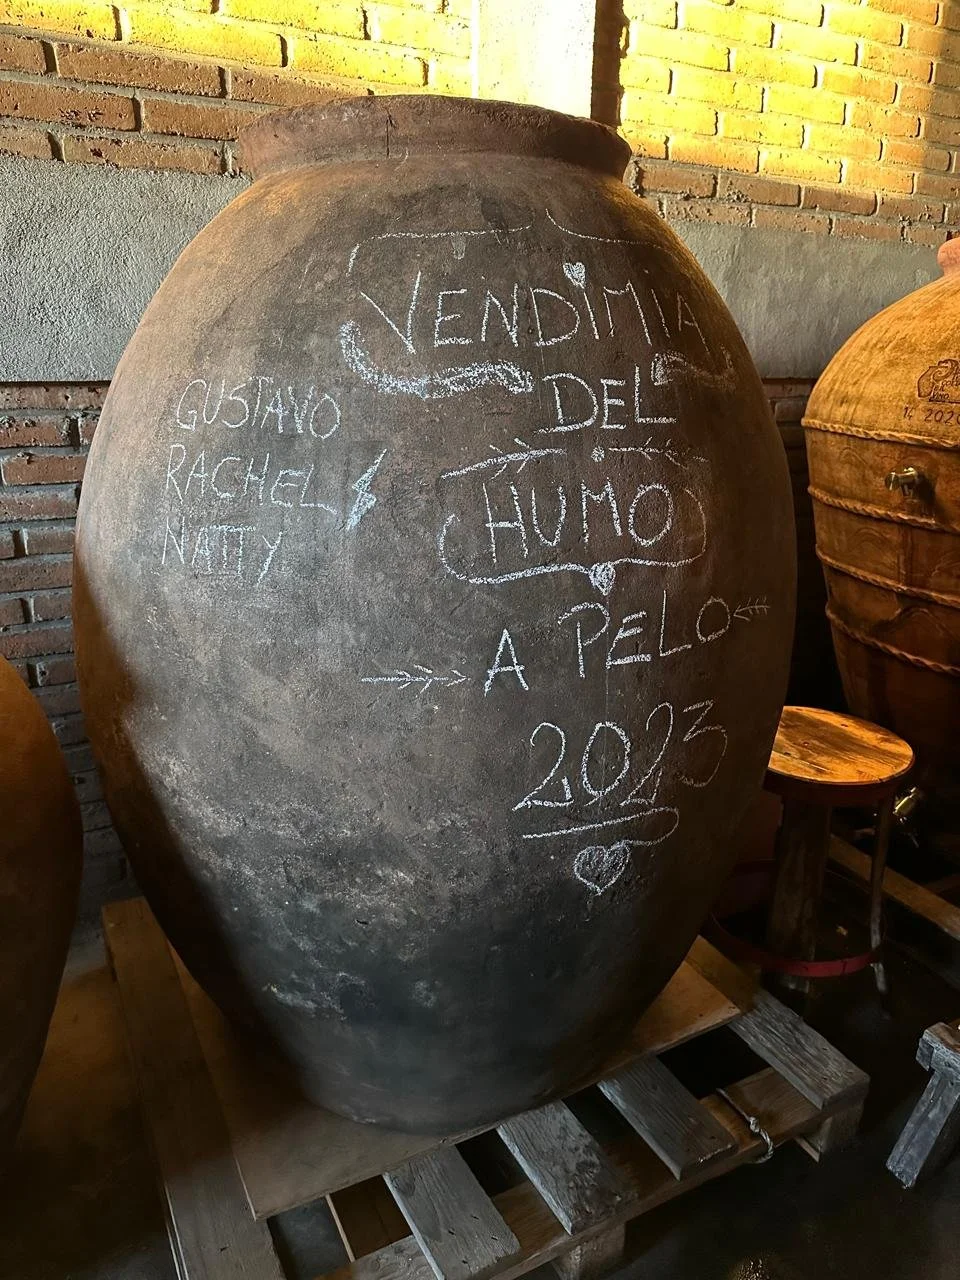 VENDIMIA
DEL
HUMO
A PELO
2023
GUSTAVO
RACHEL
NATTY
2020